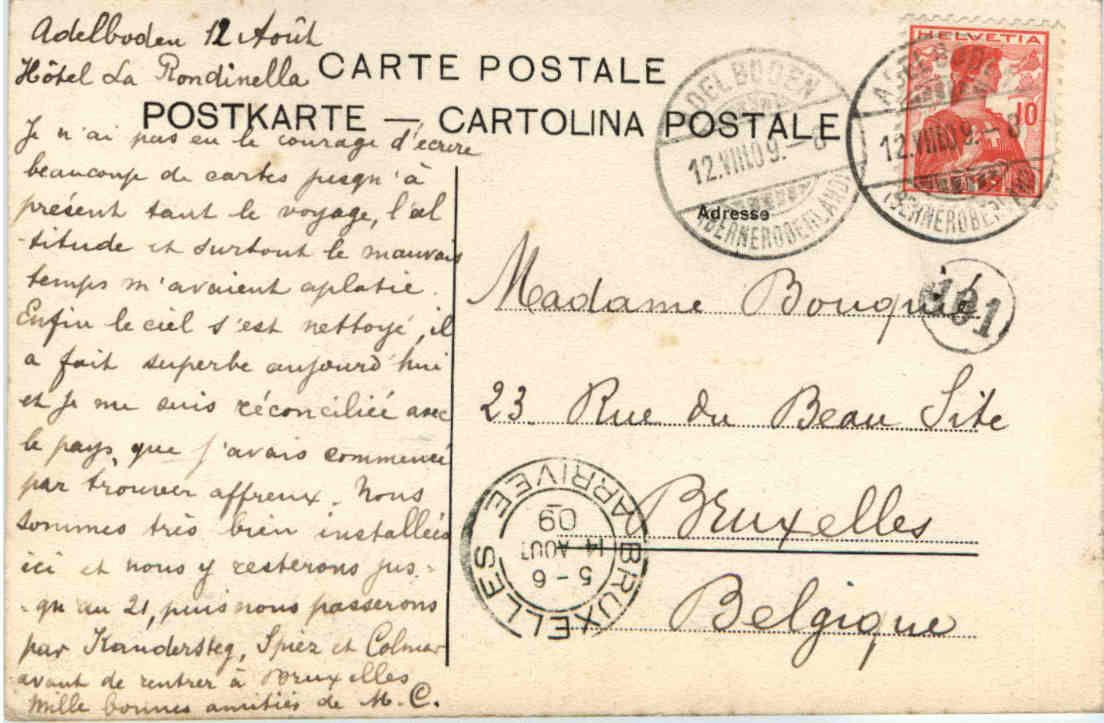 Adelboden 12 Août
Hôtel La Rondinella
CARTE POSTALE
POSTKARTE — CARTOLINA POSTALE
Je n'ai pas eu le courage d'écrire
beaucoup de cartes jusqu'à
présent tant le voyage, l'al
-titude et surtout le mauvais
temps m'avaient aplatie.
Enfin le ciel s'est nettoyé, il
a fait superbe aujourd'hui
et je me suis réconciliée avec
le pays, que j'avais commencé
par trouver affreux. Nous
sommes très bien installées
ici et nous y resterons jus-
-qu'au 21, puis nous passerons
par Kandersteg, Spiez et Colmar
avant de rentrer à Bruxelles
Mille bonnes amitiés de M. C.
HELVETIA
10
ADELBODEN
12.VIII.09.-8
(BERNEROBERLAND)
ADELBODEN
12.VIII.09.-8
(BERNEROBERLAND)
Adresse
Madame Bouquié
131
23 Rue du Beau Site
Bruxelles
Belgique
BRUXELLES ARRIVEE
5-6
14 AOUT
09